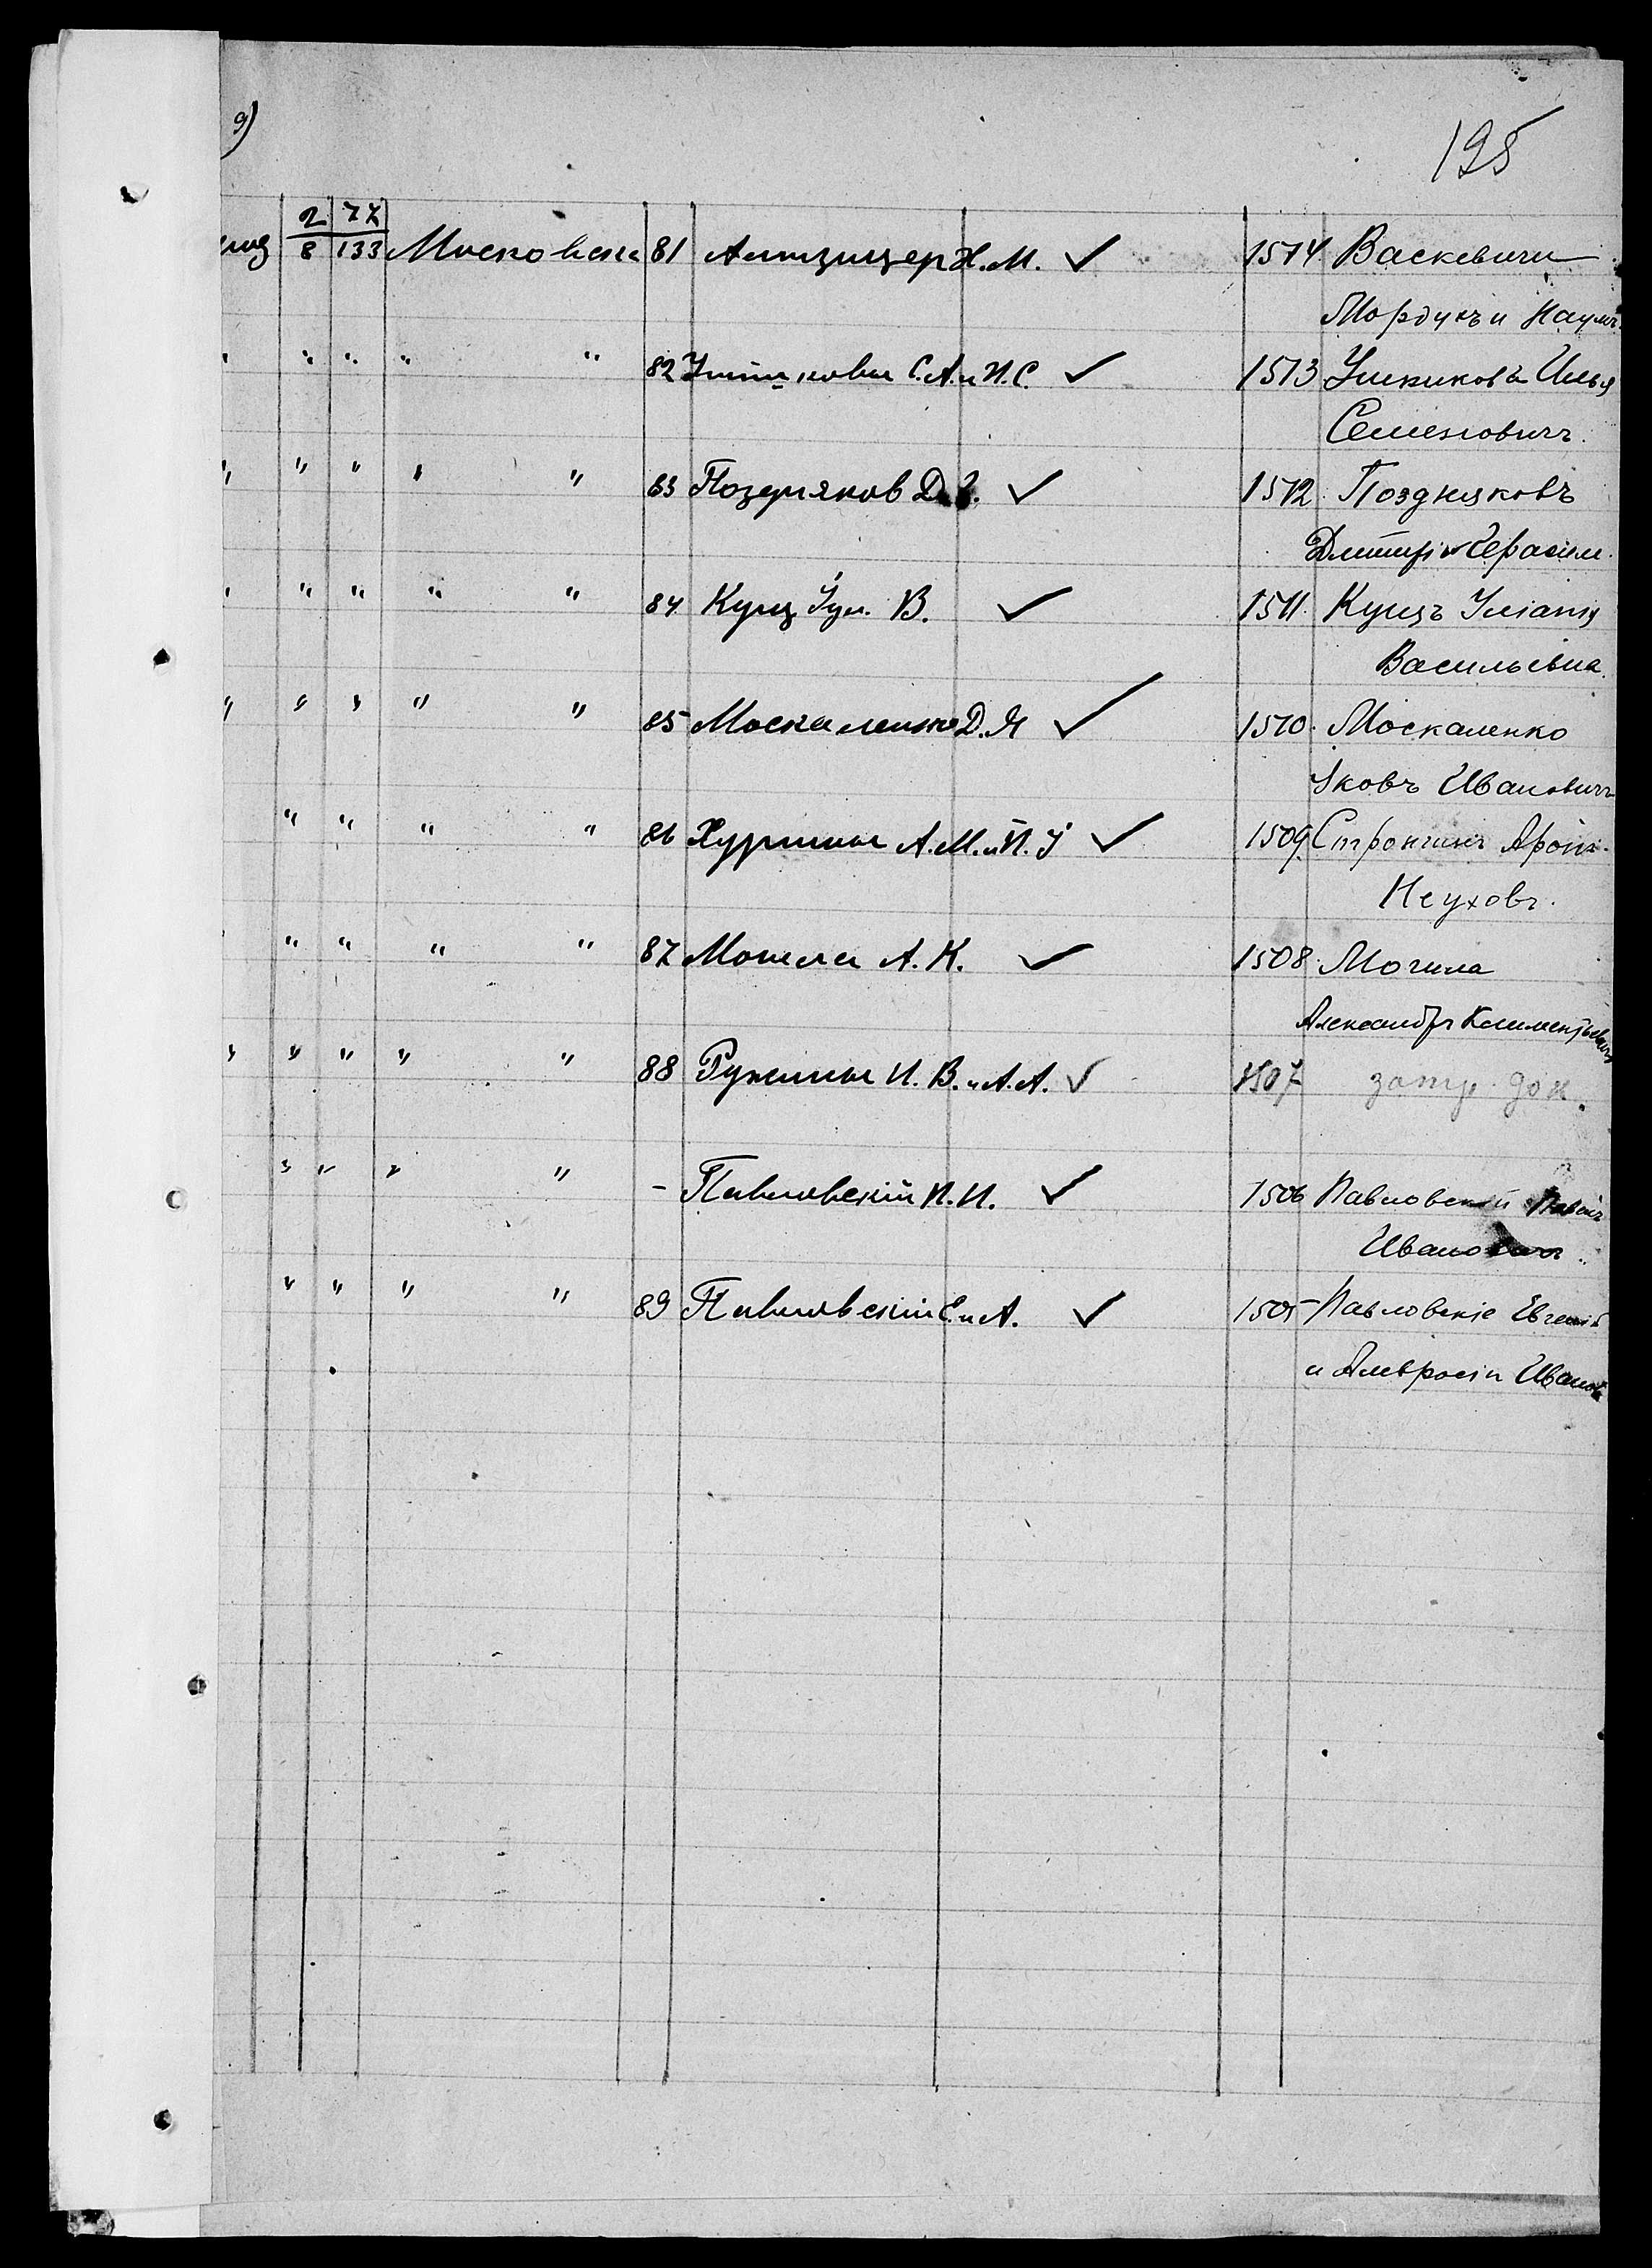 9)
195
2 77
8 133 Московская 81 Альтшуллер Х.М. ✓ 1514 Васкевичи
Мордухъ и Наумъ
" " " " " 82 С.А. и И.С. ✓ 1513 Ушкиковъ Илья
Семеновичъ.
" " " " " 83 Поздняков Д. ✓ 1512 Поздняковъ
Дмитрій Герасим.
" " " " " 84 Кунц Iул. В. ✓ 1511. Кунцъ Iуліанія
Васильевна.
" " " " " 85 Москаленко Д.Я ✓ 1510. Москаленко
Яковъ Ивановичъ
" " " " 86 А.М. и И. ✓ 1509. Стронгинъ Аронъ
Неуховъ.
" " " " 87 Могила А.К. ✓ 1508. Могила
Александръ Климентьевичъ
" " " " " 88 И.В. и А.А. ✓ 1507 затр. док.
" " " " - Павловскій П.И. ✓ 1506 Павловскій Павелъ
Ивановичъ
" " " " 89 Павловскій Е. и А. ✓ 1505 Павловскіе Евгеній
и Амвросій Иванов